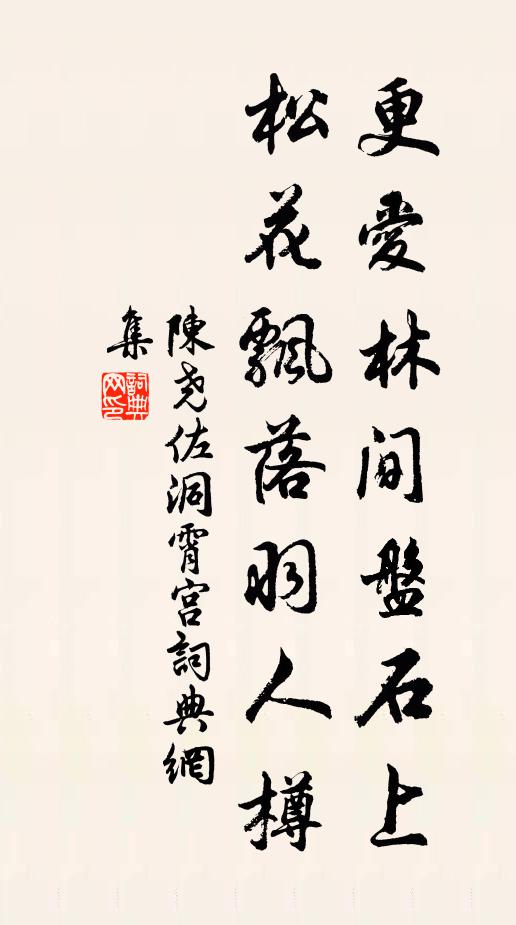 更愛林間盤石上
松花飄落羽人樽
陳堯佐洞霄宮詞典網
集
詞典网印